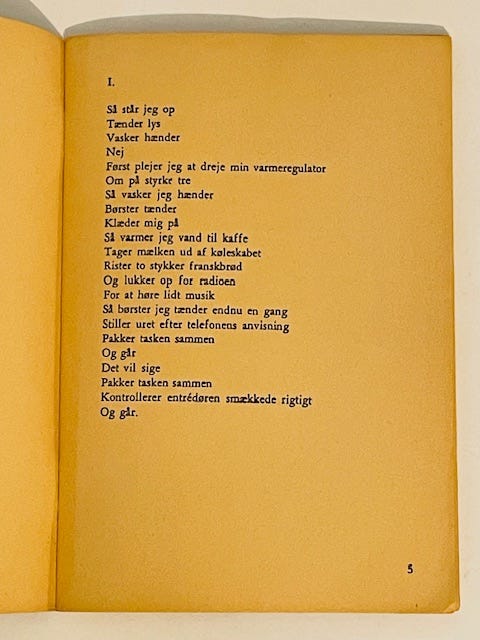 I.
Så står jeg op
Tænder lys
Vasker hænder
Nej
Først plejer jeg at dreje min varmeregulator
Om på styrke tre
Så vasker jeg hænder
Børster tænder
Klæder mig på
Så varmer jeg vand til kaffe
Tager mælken ud af køleskabet
Rister to stykker franskbrød
Og lukker op for radioen
For at høre lidt musik
Så børster jeg tænder endnu en gang
Stiller uret efter telefonens anvisning
Pakker tasken sammen
Og går
Det vil sige
Pakker tasken sammen
Kontrollerer entrédøren smækkede rigtigt
Og går.
5